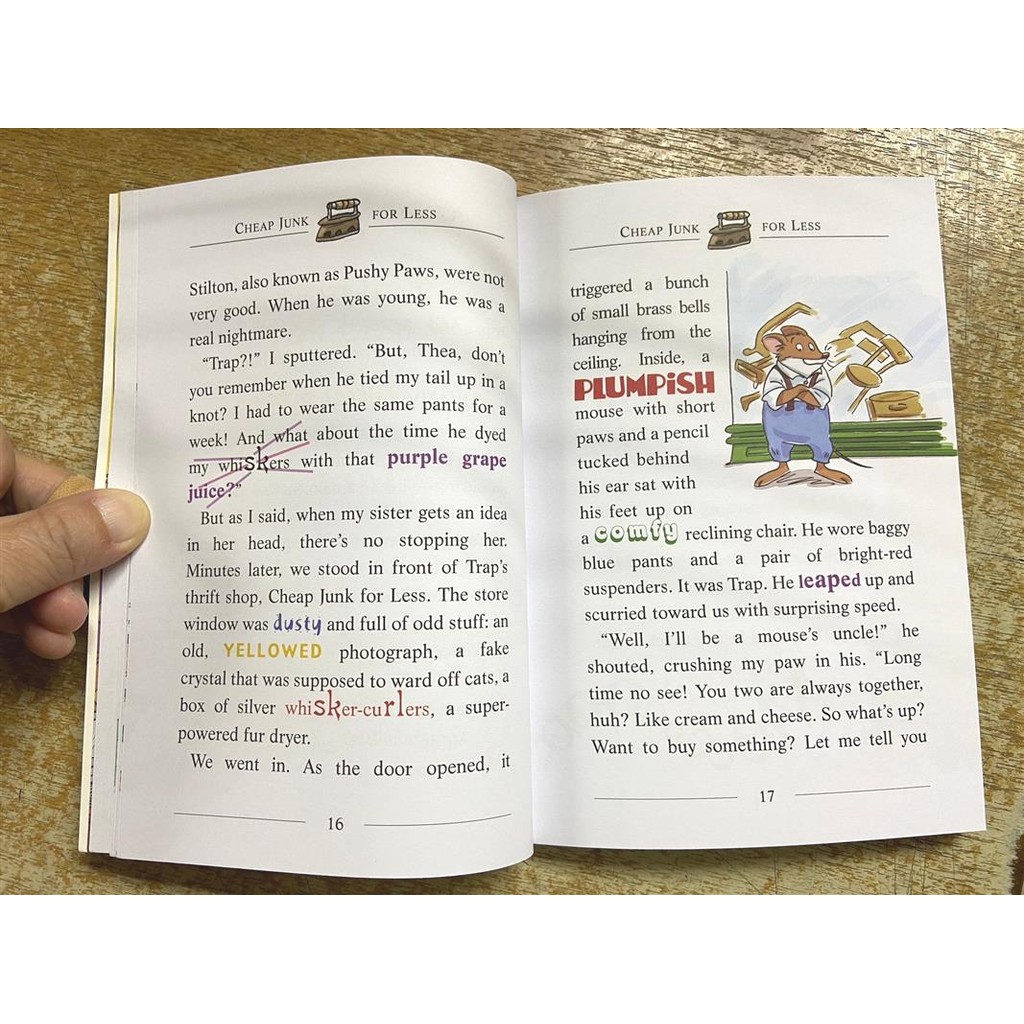 CHEAP JUNK FOR LESS
Stilton, also known as Pushy Paws, were not
very good. When he was young, he was a
real nightmare.
“Trap?!” I sputtered. “But, Thea, don’t
you remember when he tied my tail up in a
knot? I had to wear the same pants for a
week! And what about the time he dyed
my whiskers with that purple grape
juice?”
But as I said, when my sister gets an idea
in her head, there’s no stopping her.
Minutes later, we stood in front of Trap’s
thrift shop, Cheap Junk for Less. The store
window was dusty and full of odd stuff: an
old, YELLOWED photograph, a fake
crystal that was supposed to ward off cats, a
box of silver whisker-curlers, a super-
powered fur dryer.
We went in. As the door opened, it
16
CHEAP JUNK FOR LESS
triggered a bunch
of small brass bells
hanging from the
ceiling. Inside, a
PLUMPiSH
mouse with short
paws and a pencil
tucked behind
his ear sat with
his feet up on
a comfy reclining chair. He wore baggy
blue pants and a pair of bright-red
suspenders. It was Trap. He leaped up and
scurried toward us with surprising speed.
“Well, I’ll be a mouse’s uncle!” he
shouted, crushing my paw in his. “Long
time no see! You two are always together,
huh? Like cream and cheese. So what’s up?
Want to buy something? Let me tell you
17